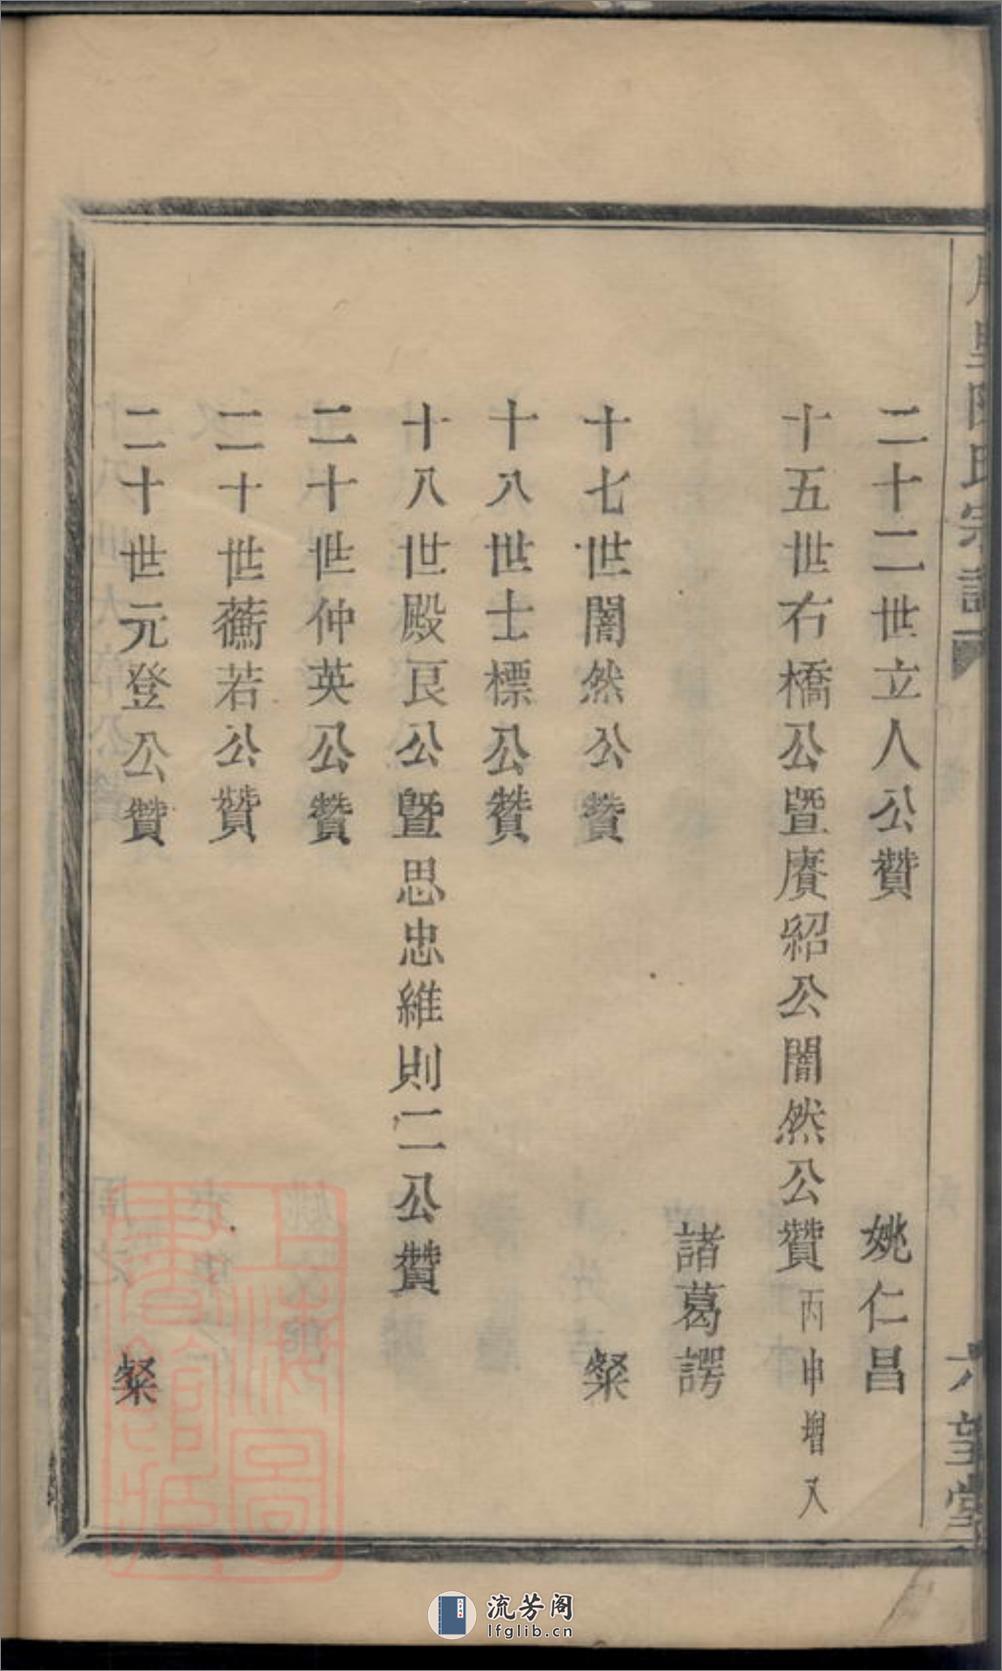 陳氏宗譜
六 望堂
二十二世立人公贊 姚仁昌
十五世右橋公暨賡紹公闇然公贊 丙申增入
諸葛諤
十七世闇然公贊 粲
十八世士標公贊
十八世殿良公暨思忠維則二公贊
二十世仲英公贊
二十世蘅若公贊
二十世元登公贊 粲
上海圖
書館藏
流芳阁
lfglib.cn